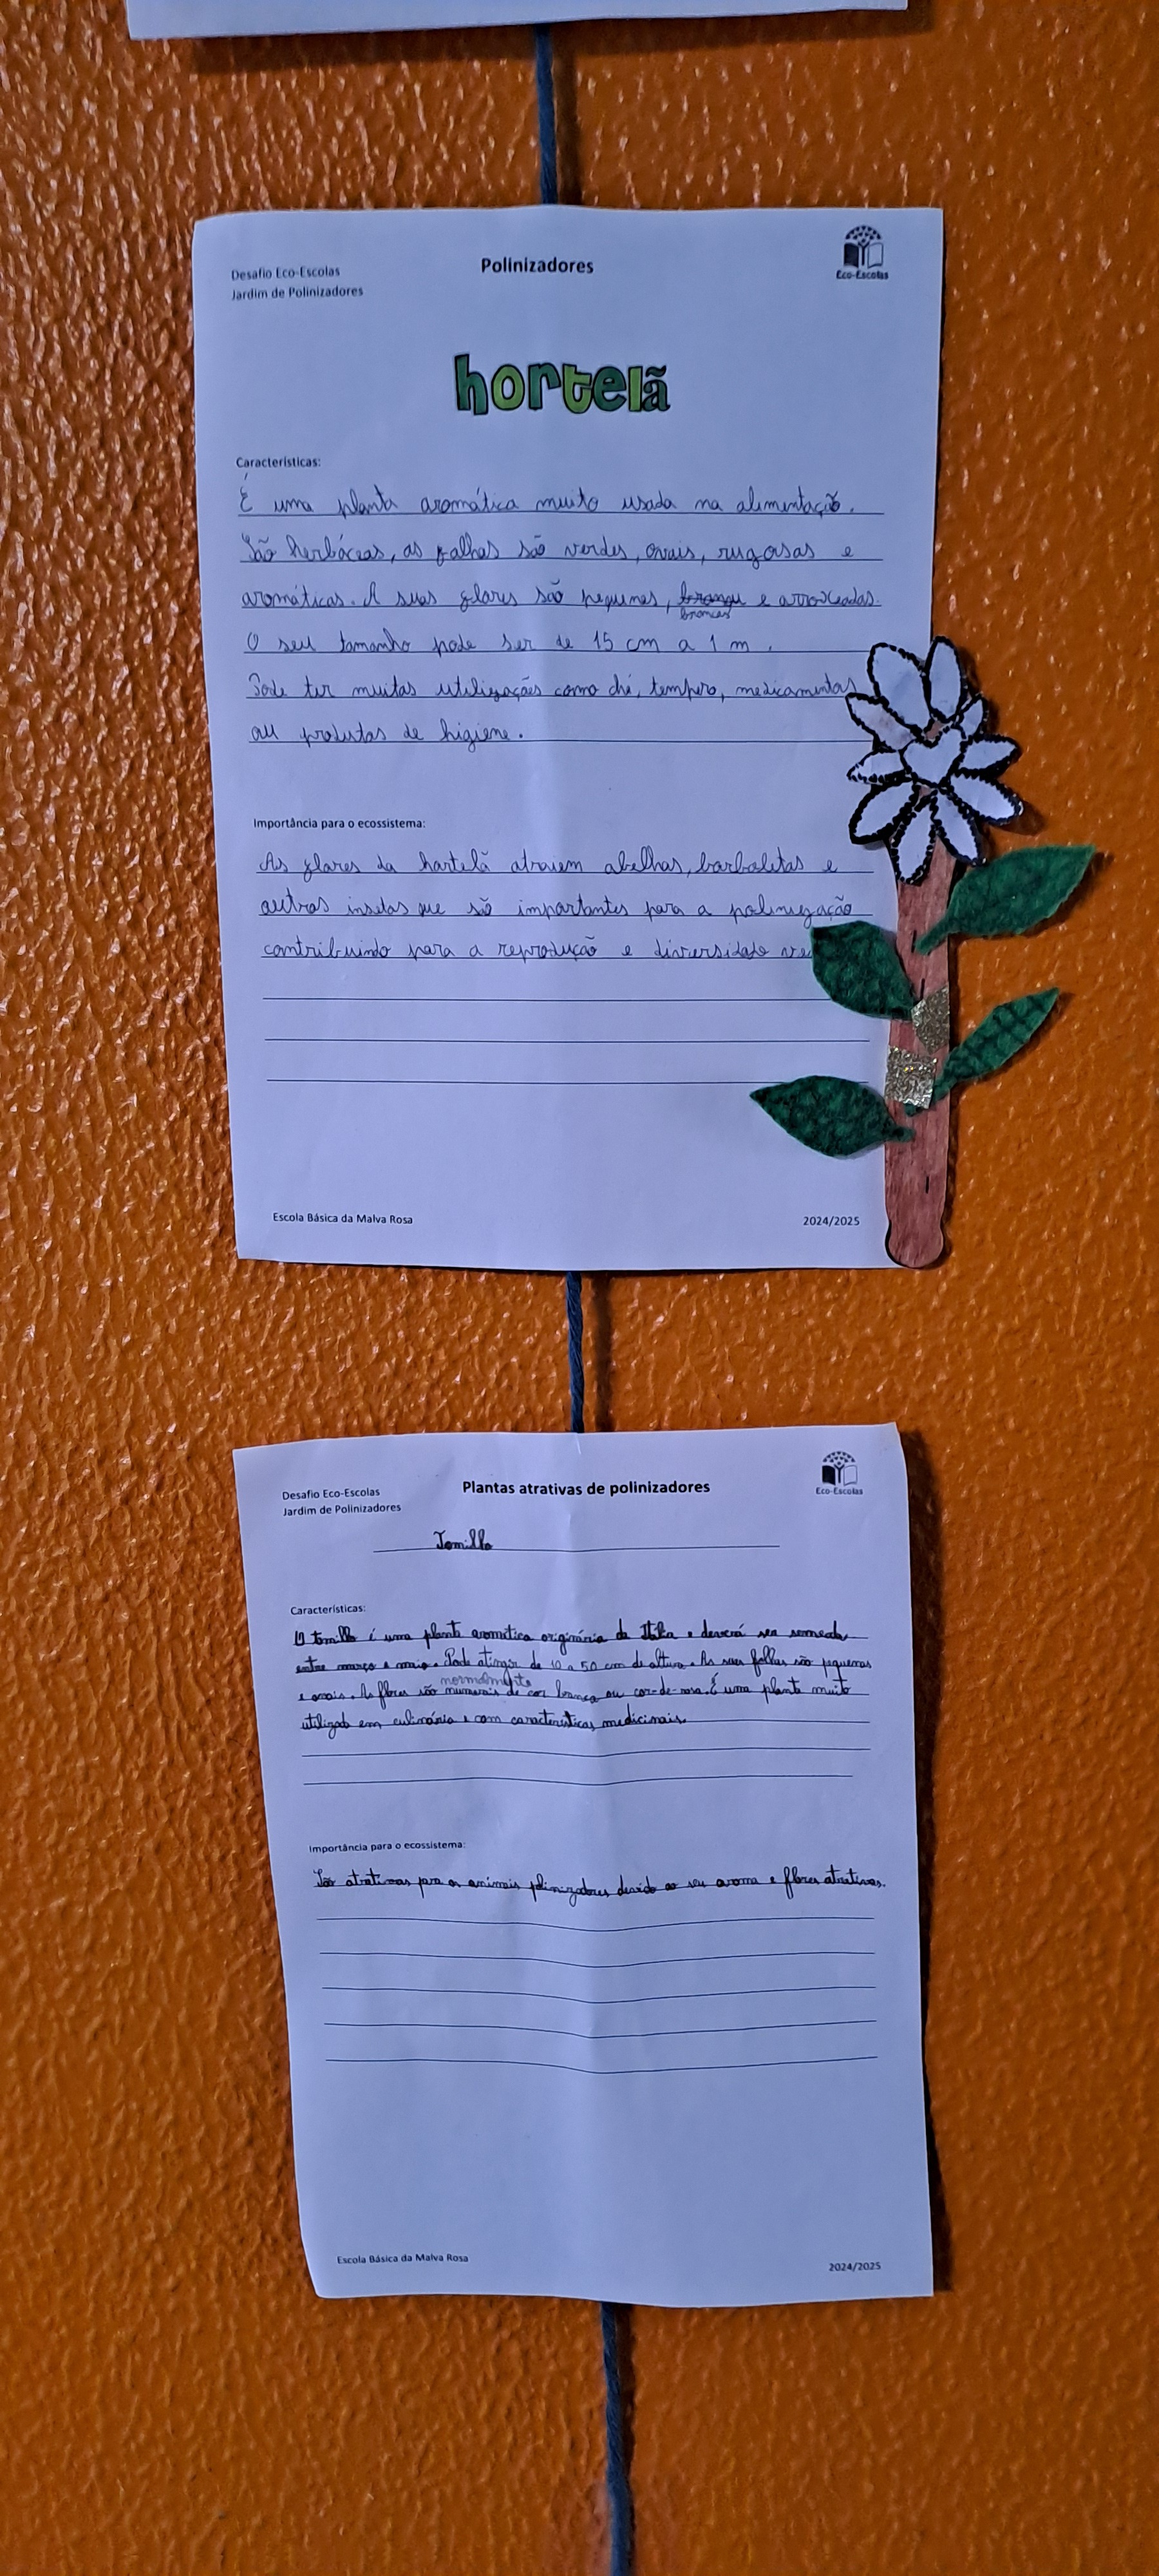 Desafio Eco-Escolas
Jardim de Polinizadores
Polinizadores
Eco-Escolas
hortelã
Características:
É uma planta aromática muito usada na alimentação.
São herbáceas, as folhas são verdes, ovais, rugosas e
aromáticas. A suas flores são pequenas, brancas e arroxeadas.
O seu tamanho pode ser de 15 cm a 1 m.
Pode ter muitas utilizações como chá, tempero, medicamentos
ou produtos de higiene.
Importância para o ecossistema:
As flores da hortelã atraiem abelhas, borboletas e
outros insetos que são importantes para a polinização
contribuindo para a reprodução e diversidade
Escola Básica da Malva Rosa
2024/2025
Desafio Eco-Escolas
Jardim de Polinizadores
Plantas atrativas de polinizadores
Eco-Escolas
Tomilho
Características:
O tomilho é uma planta aromática originária da Itália e deverá ser semeada
entre março e maio. Pode atingir de 10 a 50 cm de altura. As suas folhas são pequenas
e ovais. As flores são normalmente de cor branca ou cor-de-rosa. É uma planta muito
utilizada em culinária e com características medicinais.
Importância para o ecossistema:
São atrativas para os animais polinizadores devido ao seu aroma e flores atrativas.
Escola Básica da Malva Rosa
2024/2025